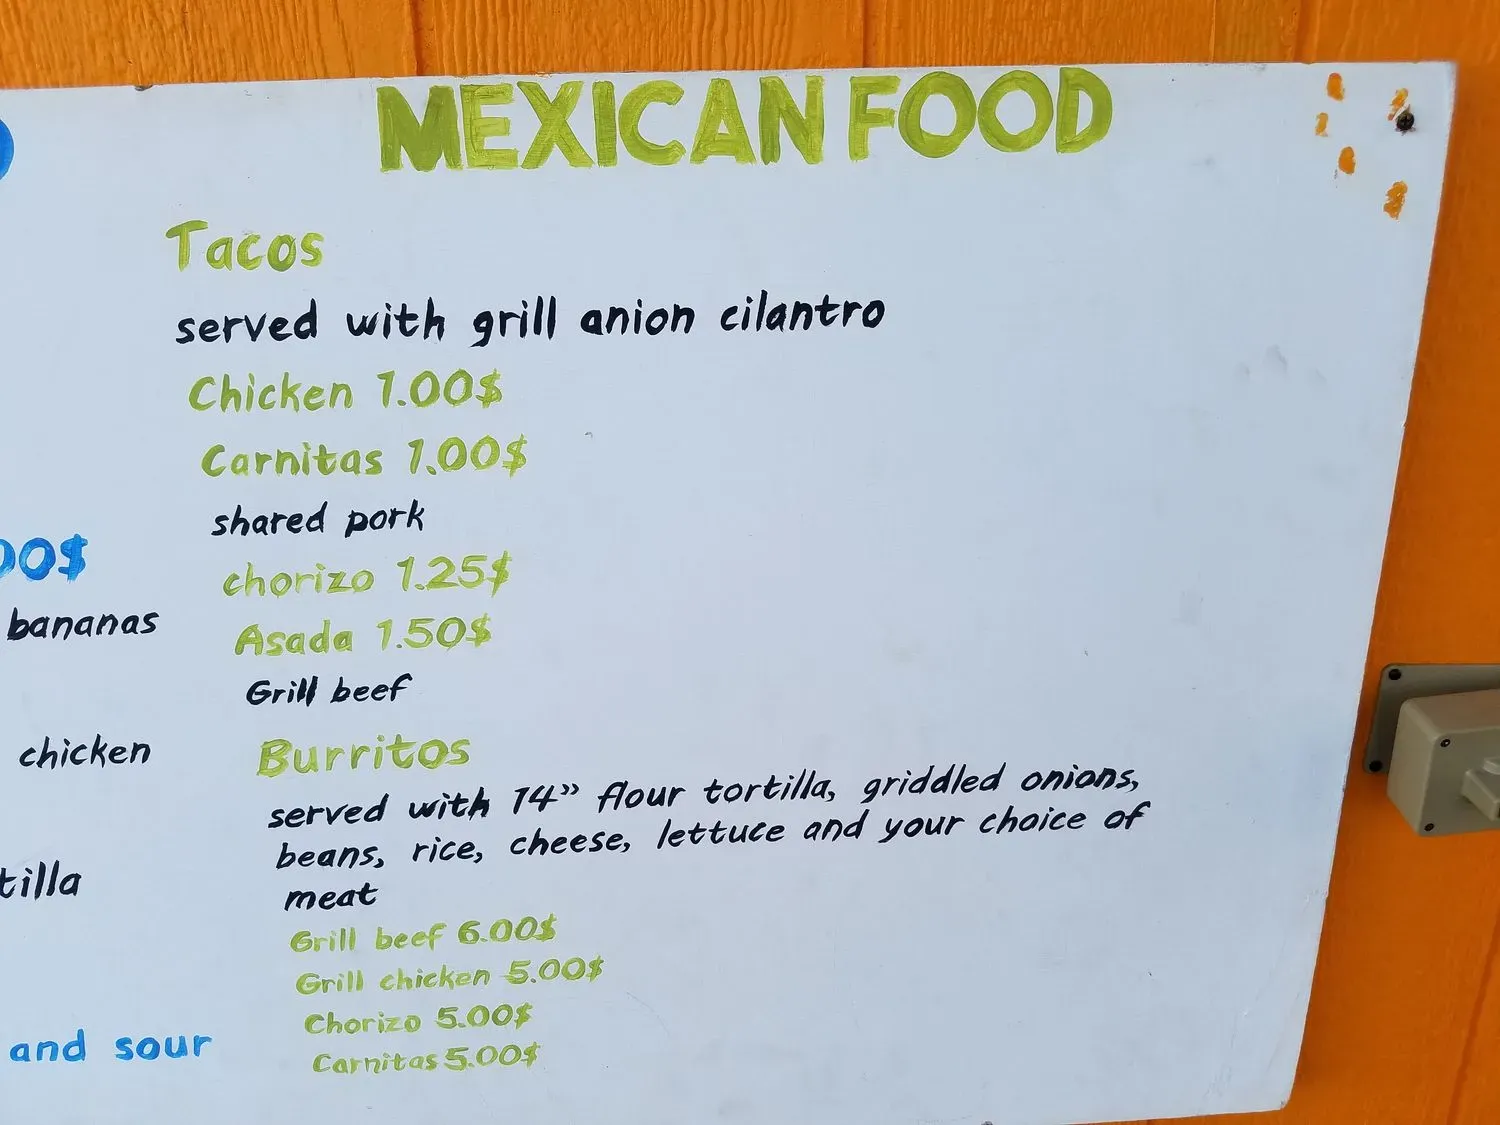 MEXICAN FOOD
Tacos
served with grill anion cilantro
Chicken 1.00$
Carnitas 1.00$
shared pork
chorizo 1.25$
Asada 1.50$
Grill beef
Burritos
served with 14" flour tortilla, griddled onions,
beans, rice, cheese, lettuce and your choice of
meat
Grill beef 6.00$
Grill chicken 5.00$
Chorizo 5.00$
Carnitas 5.00$
00$
bananas
chicken
tilla
and sour